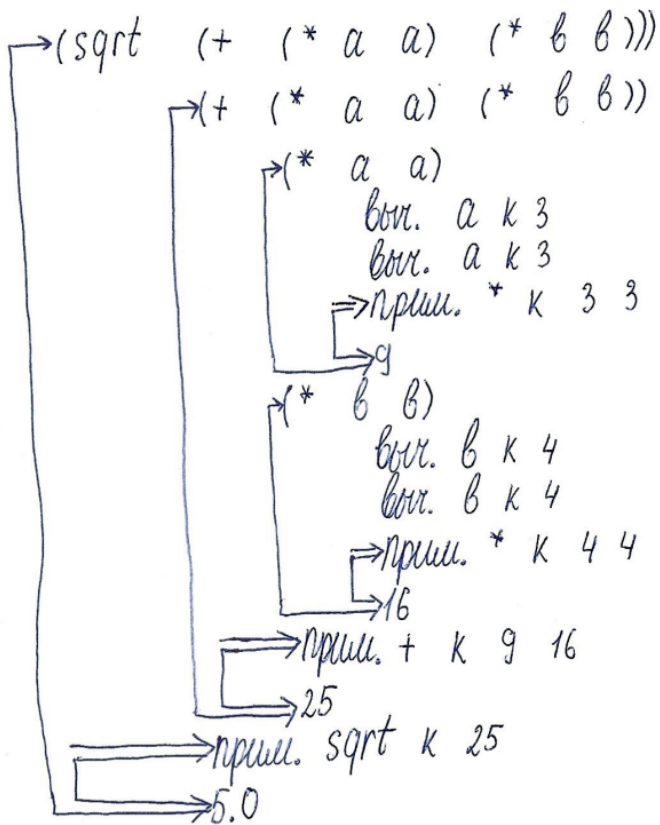 (sqrt (+ (* a a) (* в в)))
(+ (* a a) (* в в))
(* a a)
выч. a к 3
выч. a к 3
прим. * к 3 3
9
(* в в)
выч. в к 4
выч. в к 4
прим. * к 4 4
16
прим. + к 9 16
25
прим. sqrt к 25
5.0